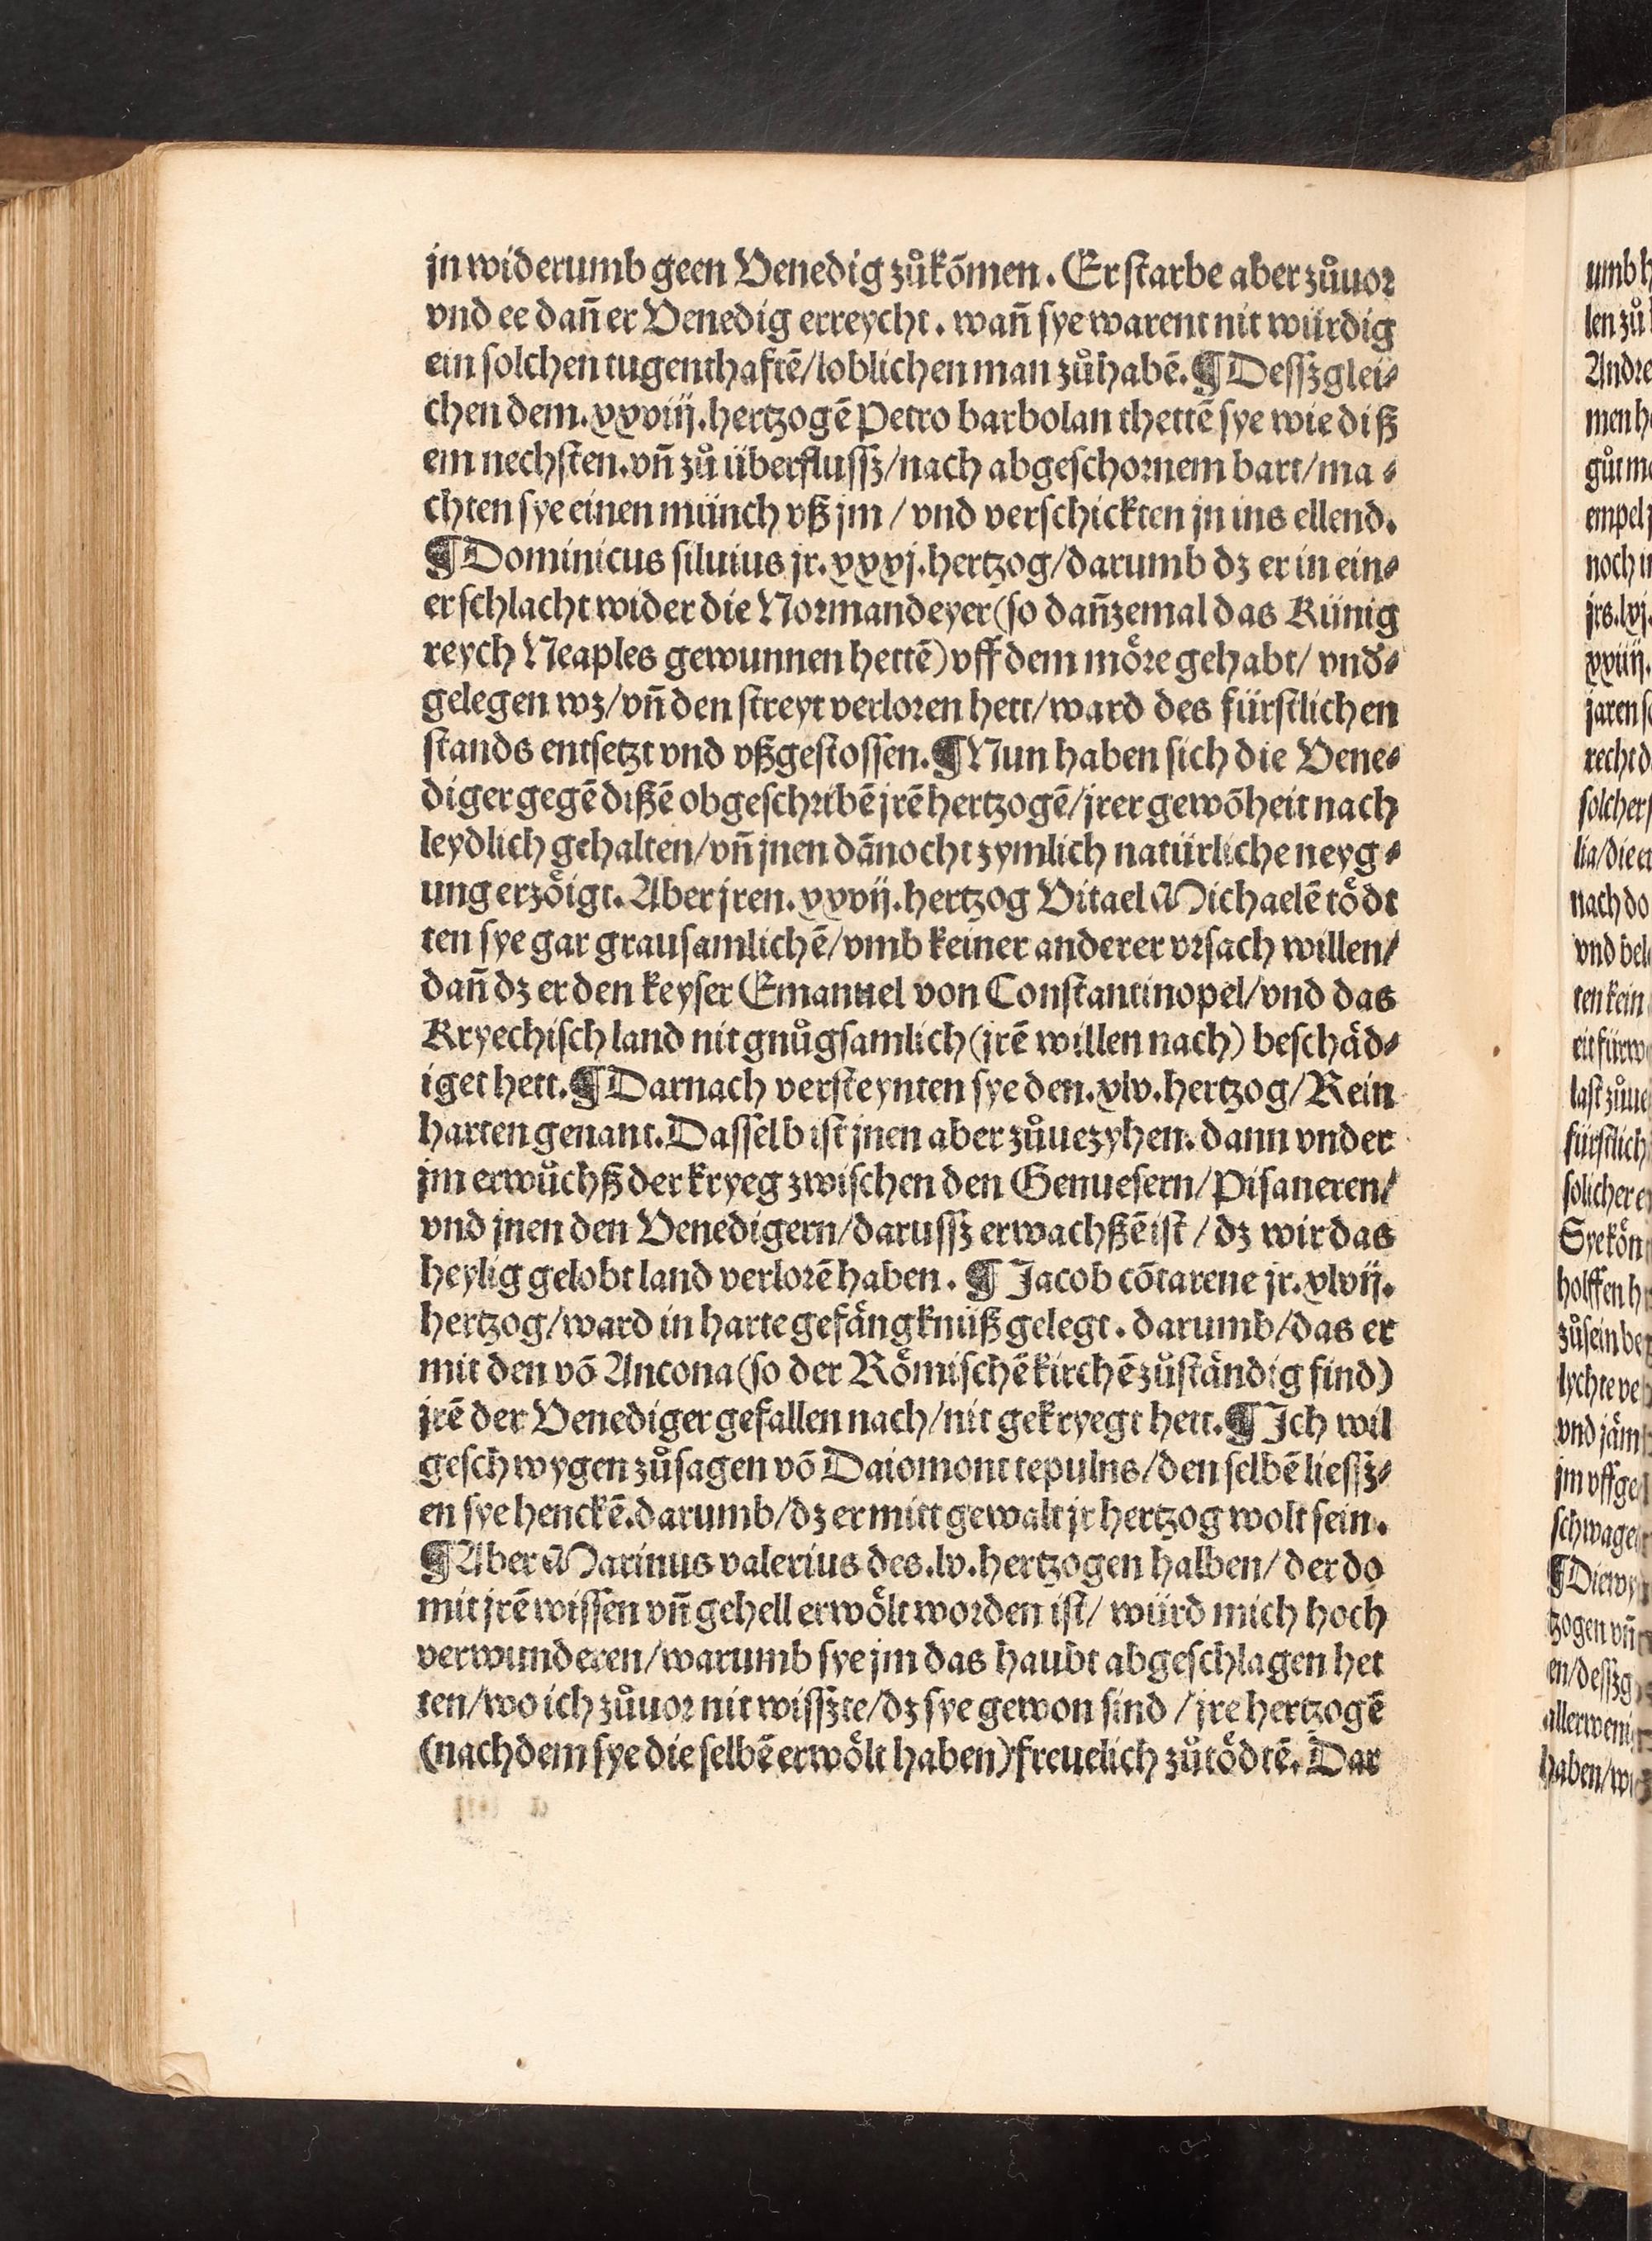 jn widerumb geen Venedig zůkōmen. Er starbe aber zůuor
vnd ee dañ er Venedig erreycht. wañ sye warent nit würdig
ein solchen tugenthaftē/loblichen man zůhabē. ¶ Dessz glei⸗
chen dem. xxviij. hertzogē Petro barbolan thettē sye wie diß
em nechsten. vñ zů überflussz/nach abgeschornem bart/ma⸗
chten sye einen münch vß jm / vnd verschickten jn ins ellend.
¶ Dominicus siluius jr. xxxj. hertzog/darumb dz er in ein⸗
er schlacht wider die Normandeyer (so dañzemal das Künig
reych Neaples gewunnen hettē) vff dem möre gehabt/ vnd⸗
gelegen wz/vñ den streyt verloren hett/ward des fürstlichen
stands entsetzt vnd vßgestossen. ¶ Nun haben sich die Vene⸗
diger gegē dißē obgeschribē jrē hertzogē/jrer gewōheit nach
leydlich gehalten/vñ jnen dānocht zymlich natürliche neyg⸗
ung erzöigt. Aber jren. xxxvij. hertzog Vitael Michaelē tödt
ten sye gar grausamlichē/vmb keiner anderer vrsach willen/
dañ dz er den keyser Emanuel von Constantinopel/vnd das
Kryechisch land nit gnůgsamlich (jrē willen nach) beschäd⸗
iget hett. ¶ Darnach versteynten sye den. xlv. hertzog/Rein
harten genant. Dasselb ist jnen aber zůuezyhen. dann vnder
jm erwůchß der kryeg zwischen den Genuesern/Pisaneren/
vnd jnen den Venedigern/darussz erwachßē ist / dz wir das
heylig gelobt land verlorē haben. ¶ Jacob cōtarene jr. xlvij.
hertzog/ward in harte gefängknüß gelegt. darumb/das er
mit den vō Ancona (so der Römischē kirchē zůständig sind)
jrē der Venediger gefallen nach/nit gekryegt hett. ¶ Ich wil
geschwygen zůsagen vō Daiomont tepulns/den selbē liessz⸗
en sye henckē. darumb/dz er mitt gewalt jr hertzog wolt sein.
¶ Aber Marinus valerius des. lv. hertzogen halben/ der do
mit jrē wissen vñ gehell erwölt worden ist/ würd mich hoch
verwunderen/warumb sye jm das haubt abgeschlagen het
ten/wo ich zůuor nit wisszte/dz sye gewon sind / jre hertzogē
(nachdem sye die selbē erwölt haben) freuelich zůtödtē. Dar